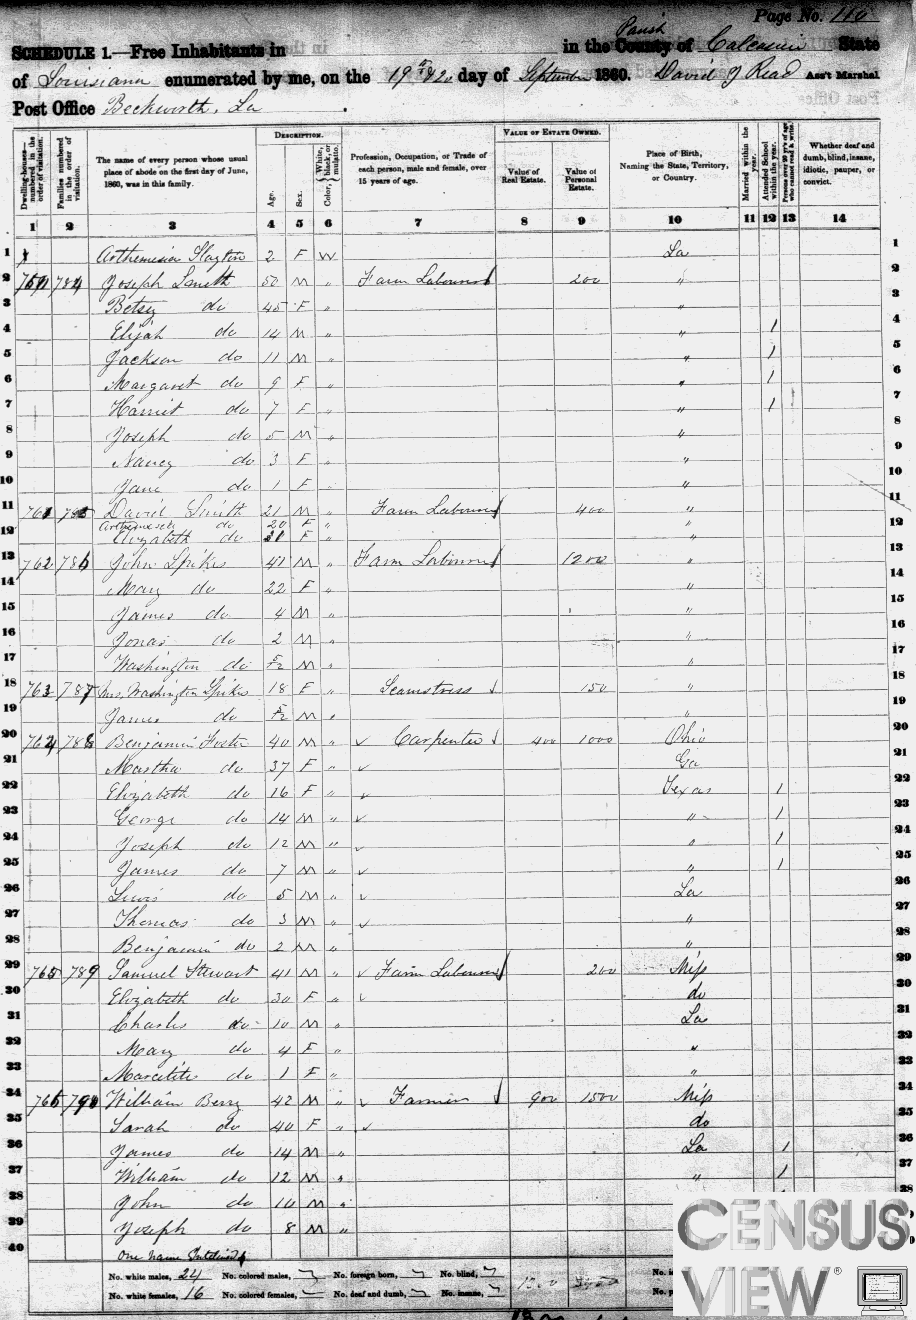 Page No. 110
SCHEDULE 1.—Free Inhabitants in in the County Parish of Calcasieu State
of Louisiana enumerated by me, on the 19th & 20 day of September 1860. David J Read Ass't Marshal
Post Office Beckworth, La.
Dwelling-houses—numbered in the order of visitation.
Families numbered in the order of visitation.
The name of every person whose usual place of abode on the first day of June, 1860, was in this family.
DESCRIPTION.
Age.
Sex.
Color, White, black, or mulatto.
Profession, Occupation, or Trade of each person, male and female, over 15 years of age.
VALUE OF ESTATE OWNED.
Value of Real Estate.
Value of Personal Estate.
Place of Birth, Naming the State, Territory, or Country.
Married within the year.
Attended School within the year.
Persons over 20 y'rs of age who cannot read & write.
Whether deaf and dumb, blind, insane, idiotic, pauper, or convict.
1 2 3 4 5 6 7 8 9 10 11 12 13 14
1 Arthemisia Slayton 2 F W La 1
2 784 Joseph Smith 50 M " Farm Labourer 200 " 2
3 Betsy do 45 F " " 3
4 Elijah do 14 M " " 1 4
5 Jackson do 11 M " " 1 5
6 Margaret do 9 F " " 1 6
7 Harriet do 7 F " " 1 7
8 Joseph do 5 M " " 8
9 Nancy do 3 F " " 9
10 Jane do 1 F " " 10
11 761 785 David Smith 21 M " Farm Labourer 400 " 11
do 20 F " "
12 Elizabeth do F " " 12
13 762 786 John Spikes 41 M " Farm Labourer 1200 " 13
14 Mary do 22 F " " 14
15 James do 4 M " " 15
16 Jonas do 2 M " " 16
17 Washington do 5/12 M " " 17
18 763 787 Mrs. Washington Spikes 18 F " Seamstress 150 " 18
19 James do 5/12 M " " 19
20 764 788 Benjamin Foster 40 M " Carpenter 400 1000 Ohio 20
21 Martha do 37 F " Ga 21
22 Elizabeth do 16 F " Texas 1 22
23 George do 14 M " " 1 23
24 Joseph do 12 M " " 1 24
25 James do 7 M " " 1 25
26 Lewis do 5 M " La 26
27 Thomas do 3 M " " 27
28 Benjamin do 2 M " " 28
29 765 789 Samuel Stewart 41 M " Farm Labourer 200 Miss 29
30 Elizabeth do 30 F " do 30
31 Charles do 10 M " La 31
32 Mary do 4 F " " 32
33 Marcelite do 1 F " " 33
34 766 790 William Berry 42 M " Farmer 900 1500 Miss 34
35 Sarah do 40 F " do 35
36 James do 14 M " La 1 36
37 William do 12 M " " 1 37
38 John do 10 M " 38
39 Joseph do 8 M "
40 One name Interlined
No. white males, 24 No. colored males, No. foreign born, No. blind,
No. white females, 16 No. colored females, No. deaf and dumb, No. insane,
CENSUS
VIEW®